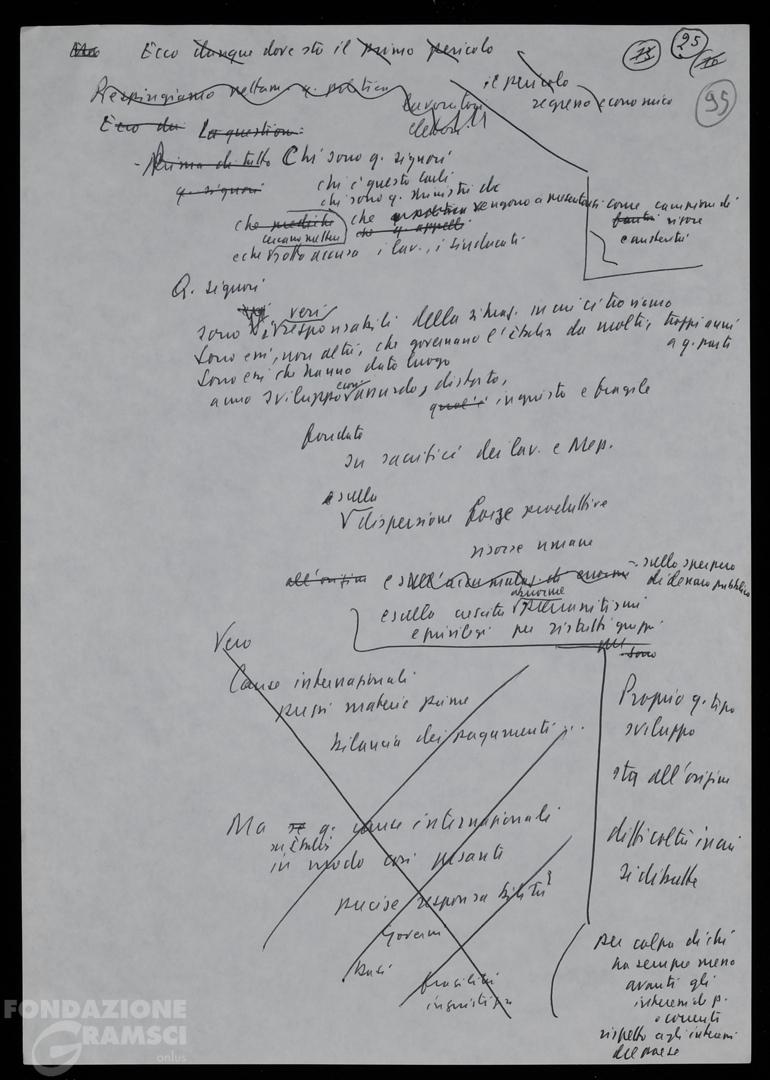 Ma Ecco dunque dove sta il primo pericolo
75 25 70
95
Respingiamo nettam. q. politica
il pericolo
regresso economico
lavoratori
Ecco dei La question.
- Prima di tutto Chi sono q. signori
q. signori
chi è questo Carli
chi sono q. ministri che
che vengono a presentarsi come campioni di
rigore
e austerità
e che sotto accusa i lav., i sindacati
Q. signori
sono i veri responsabili della situaz. in cui ci troviamo
Sono essi, non altri, che governano l'Italia da molti, troppi anni
a q. parte
Sono essi che hanno dato luogo
a uno sviluppo così assurdo, distorto,
qual'è ingiusto e fragile
fondato
su sacrifici dei lav. e Mep.
e sulla
dispersione forze produttive
risorse umane
all'origine e sull' - sullo sperpero
di denaro pubblico
e sulla crescita abnorme parassitismi
e privilegi per ristretti gruppi
sono
Vero
Cause internazionali
prezzi materie prime
bilancia dei pagamenti...
Proprio q. tipo
sviluppo
sta all'origine
difficoltà in cui
si dibatte
Ma se q. cause internazionali
su Italia
in modo così pesante
precise responsabilità
Governi
basi
fragilità
per colpa di chi
ha sempre messo
avanti gli
interessi di p.
e correnti
rispetto agli interessi
del paese
FONDAZIONE
GRAMSCI
onlus